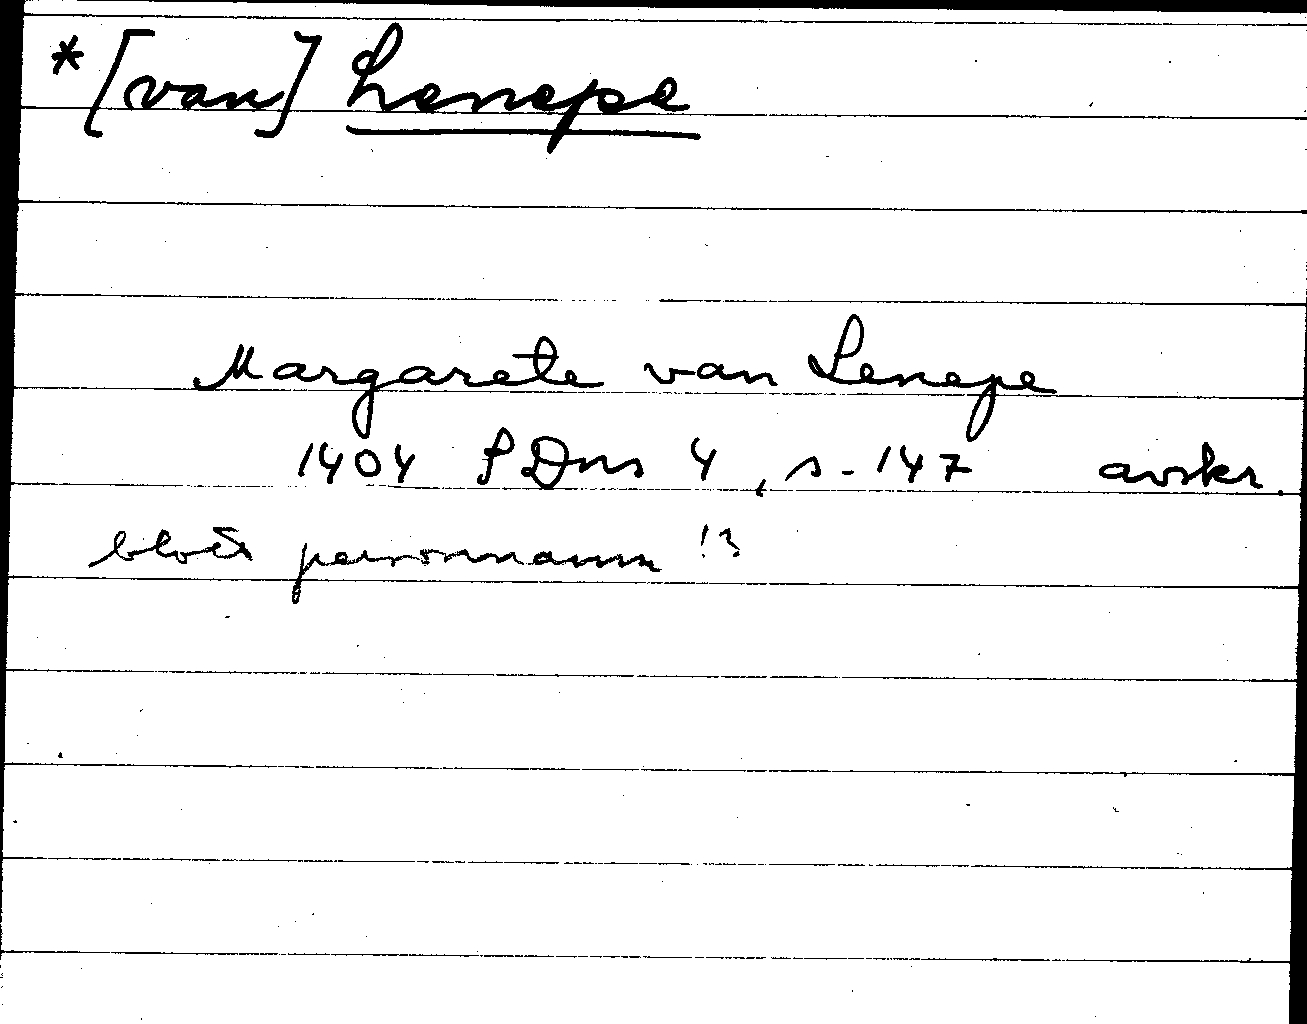 *[van] Lenepe
Margarete van Lenepe
1404 SDns 4, s. 147 avskr.
blott personnamn !?